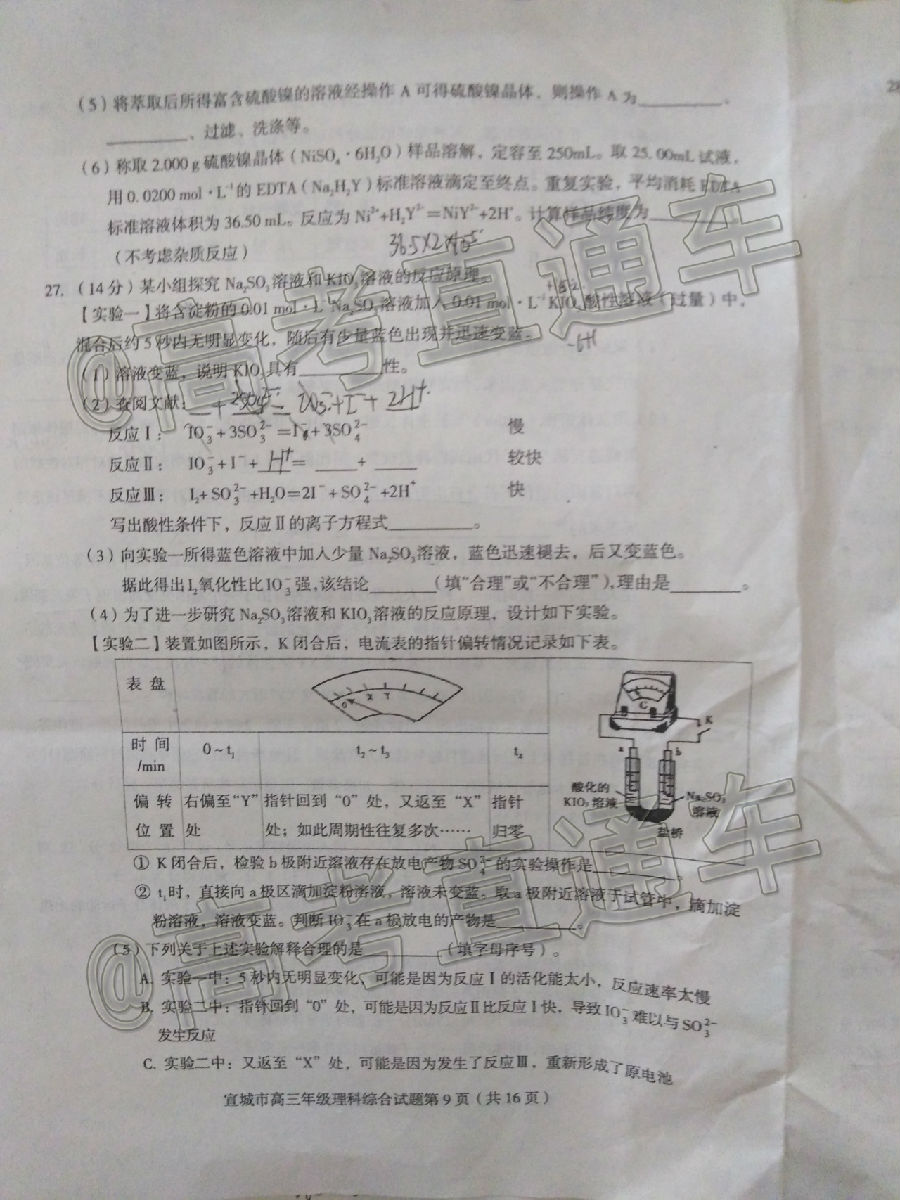 (5)将萃取后所得富含硫酸镍的溶液经操作 A 可得硫酸镍晶体,则操作 A 为________、
________、过滤、洗涤等。
(6)称取 2.000 g 硫酸镍晶体(NiSO₄·6H₂O)样品溶解,定容至 250mL。取 25.00mL 试液,
用 0.0200 mol·L⁻¹的 EDTA(Na₂H₂Y)标准溶液滴定至终点。重复实验,平均消耗 EDTA
标准溶液体积为 36.50 mL。反应为 Ni²⁺+H₂Y²⁻=NiY²⁻+2H⁺。计算样品纯度为________
(不考虑杂质反应)
27.(14分)某小组探究 Na₂SO₃溶液和 KIO₃溶液的反应原理。
【实验一】将含淀粉的0.01 mol·L⁻¹Na₂SO₃溶液加入 0.01 mol·L⁻¹KIO₃酸性溶液(过量)中,
混合后约 5 秒内无明显变化,随后有少量蓝色出现并迅速变蓝。
-6H
(1)溶液变蓝,说明 KIO₃具有________性。
(2)查阅文献:
反应Ⅰ: IO₃⁻+3SO₃²⁻=I⁻+3SO₄²⁻ 慢
反应Ⅱ: IO₃⁻+I⁻+ H⁺ = ____+____ 较快
反应Ⅲ: I₂+SO₃²⁻+H₂O=2I⁻+SO₄²⁻+2H⁺ 快
写出酸性条件下,反应Ⅱ的离子方程式________。
(3)向实验一所得蓝色溶液中加入少量 Na₂SO₃溶液,蓝色迅速褪去,后又变蓝色。
据此得出I₂氧化性比IO₃⁻强,该结论________(填“合理”或“不合理”),理由是________。
(4)为了进一步研究 Na₂SO₃溶液和 KIO₃溶液的反应原理,设计如下实验。
【实验二】装置如图所示,K 闭合后,电流表的指针偏转情况记录如下表。
表 盘
0 X Y
时 间 /min 0~t₁ t₂~t₃ t₄
偏 转 位 置 右偏至“Y”处 指针回到“0”处,又返至“X”处;如此周期性往复多次…… 指针归零
G
K
a b
酸化的
KIO₃溶液
Na₂SO₃
溶液
盐桥
① K 闭合后,检验 b 极附近溶液存在放电产物 SO₄²⁻的实验操作是________
② t₁时,直接向 a 极区滴加淀粉溶液,溶液未变蓝。取 a 极附近溶液于试管中,滴加淀
粉溶液,溶液变蓝。判断 IO₃⁻在 a 极放电的产物是________。
(5)下列关于上述实验解释合理的是________(填字母序号)。
A. 实验一中:5秒内无明显变化,可能是因为反应Ⅰ的活化能太小,反应速率太慢
B. 实验二中:指针回到“0”处,可能是因为反应Ⅱ比反应Ⅰ快,导致IO₃⁻难以与SO₃²⁻
发生反应
C. 实验二中:又返至“X”处,可能是因为发生了反应Ⅲ,重新形成了原电池
宣城市高三年级理科综合试题第 9 页(共 16 页)
@高考直通车
@高考直通车